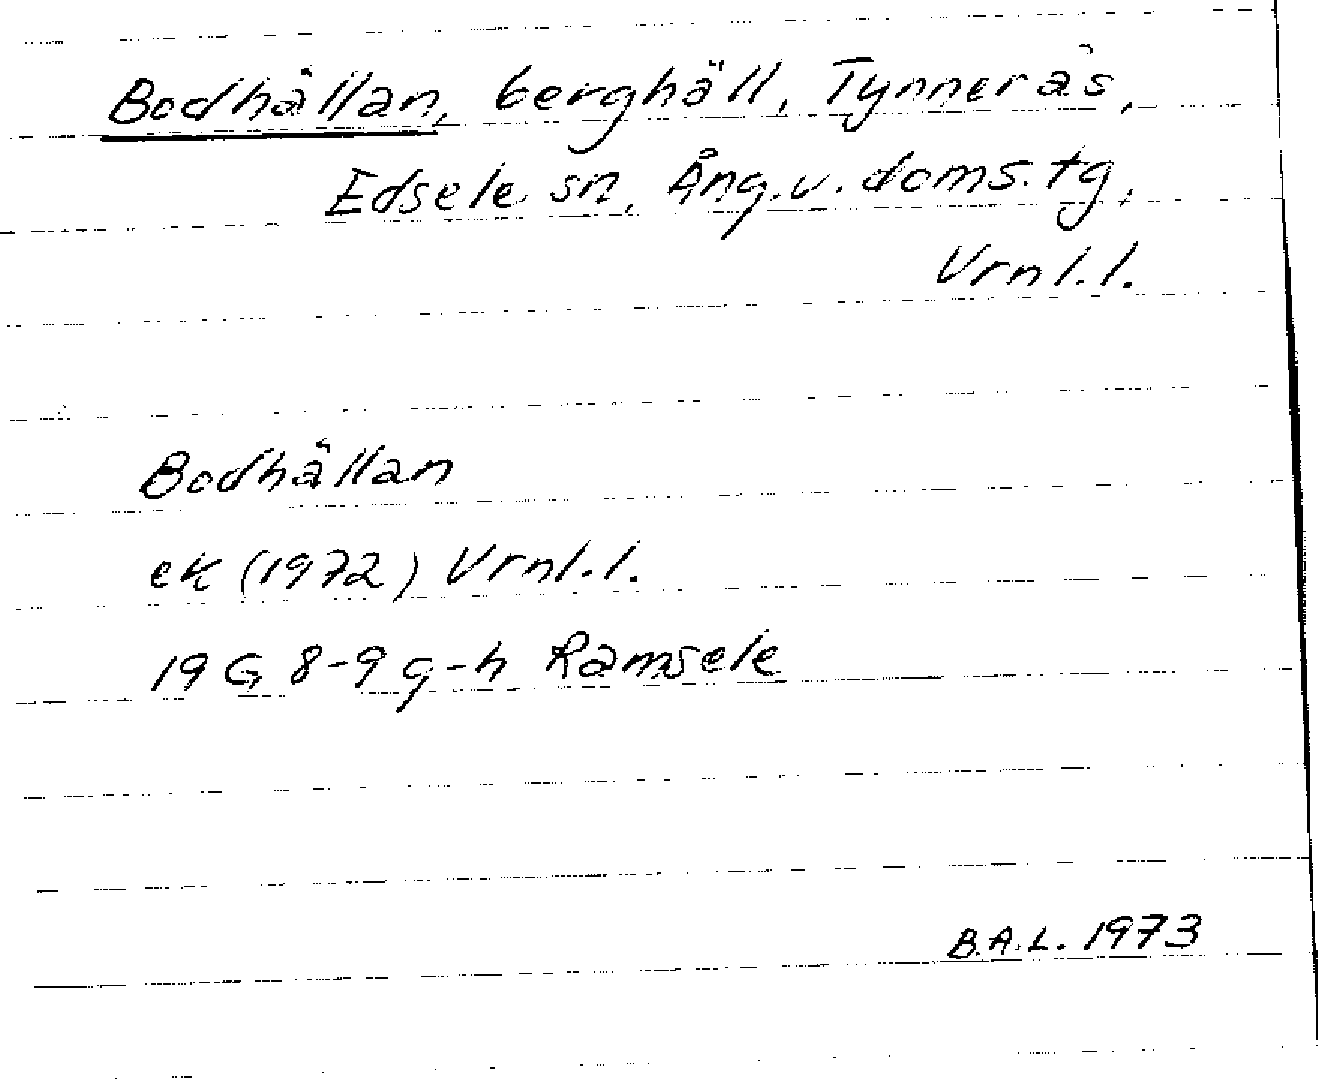 Bodhällan, berghäll, Tynnerås,
Edsele sn, Ång.v.doms.tg,
Vrnl.l.
Bodhällan
ek (1972) Vrnl.l.
19 G 8-9 g-h Ramsele
B.A.L. 1973